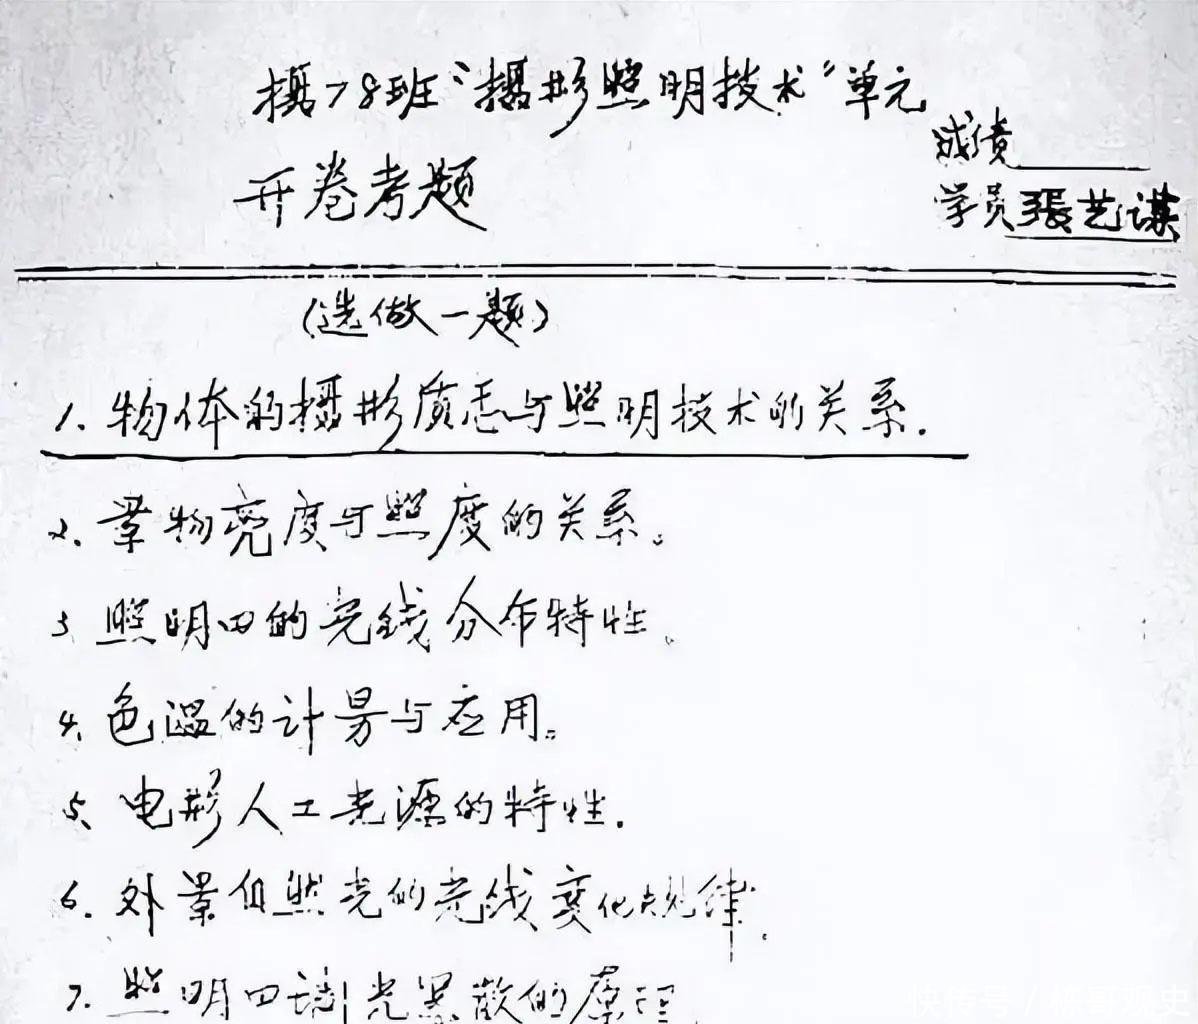 摄78班“摄影照明技术”单元
开卷考题
成绩
学员 張艺谋
(选做一题)
1. 物体的摄影质志与照明技术的关系.
2. 景物亮度与照度的关系。
3. 照明四的光线分布特性。
4. 色温的计量与应用。
5. 电影人工光源的特性.
6. 外景自然光的光线变化规律.
7. 照明四 光 散的原理
快传号 / 栋哥观史